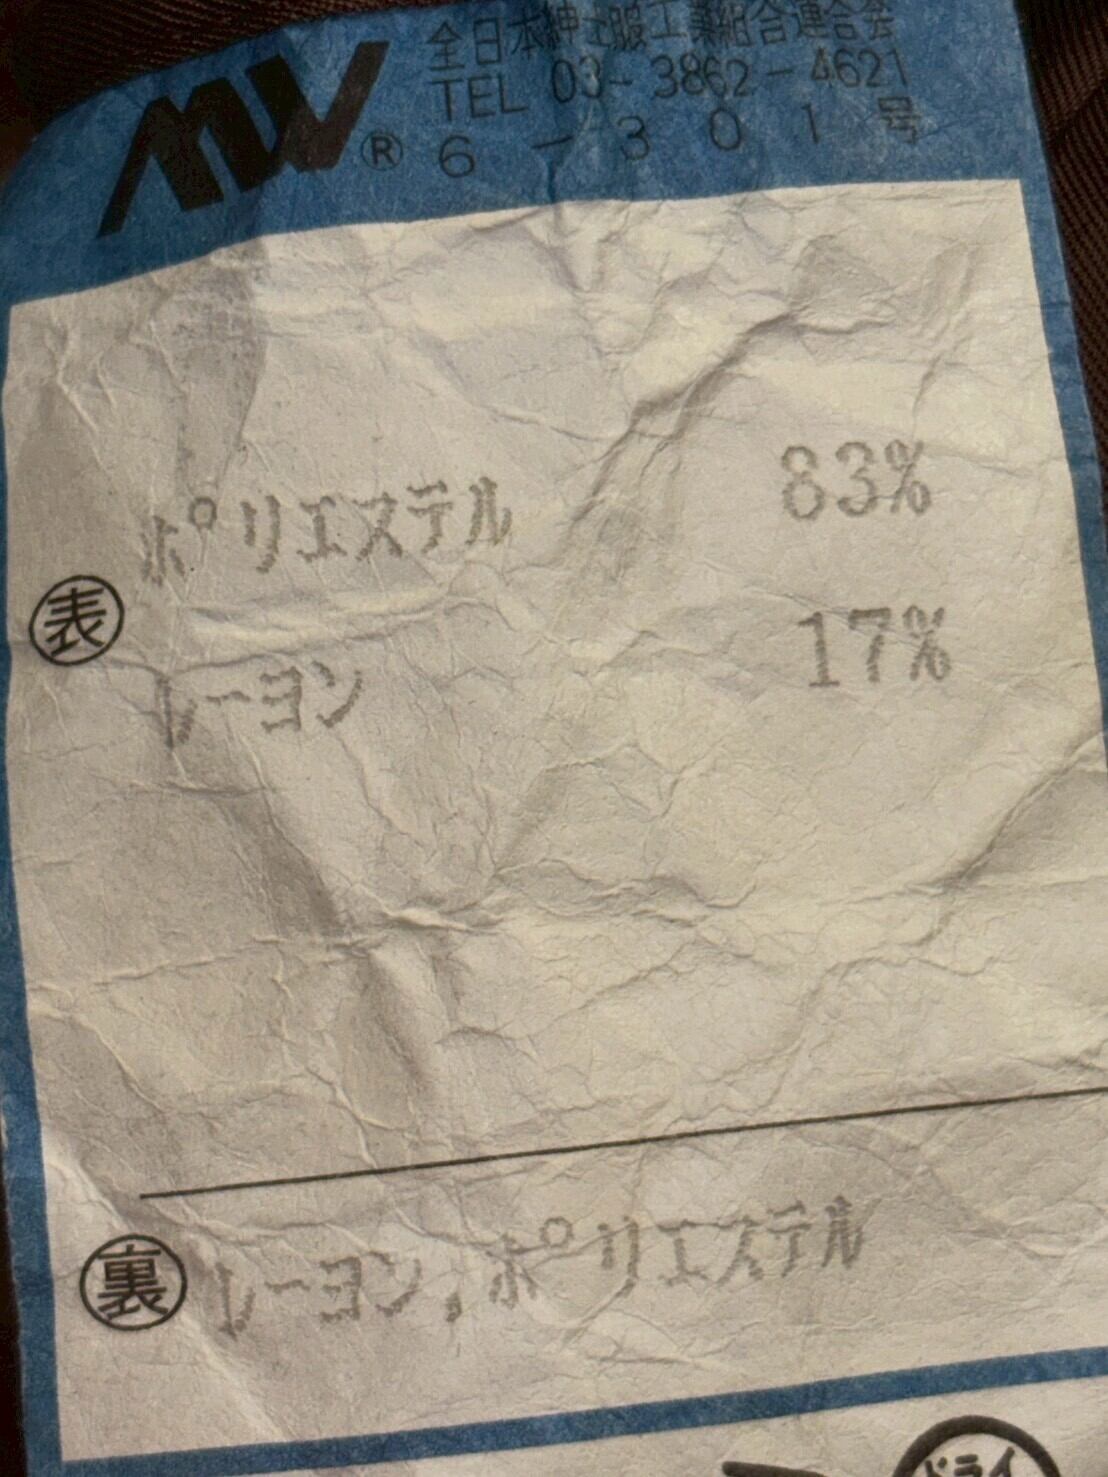 MW® 全日本紳士服工業組合連合会
TEL 03-3862-4621
6-301号
ポリエステル 83%
表
レーヨン 17%
裏 レーヨン,ポリエステル
ドライ